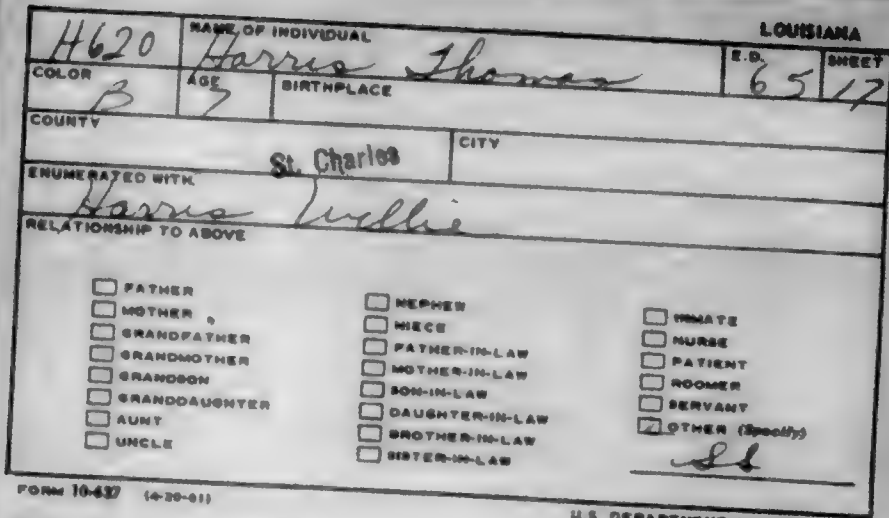 LOUISIANA
H620 NAME OF INDIVIDUAL Harris Thomas E.D. 65 SHEET 17
COLOR B AGE 7 BIRTHPLACE
COUNTY St. Charles CITY
ENUMERATED WITH
Harris Willie
RELATIONSHIP TO ABOVE
FATHER
MOTHER
GRANDFATHER
GRANDMOTHER
GRANDSON
GRANDDAUGHTER
AUNT
UNCLE
NEPHEW
NIECE
FATHER-IN-LAW
MOTHER-IN-LAW
SON-IN-LAW
DAUGHTER-IN-LAW
BROTHER-IN-LAW
SISTER-IN-LAW
INMATE
NURSE
PATIENT
ROOMER
SERVANT
OTHER (Specify)
SS
FORM 10-637 (4-20-61)
U.S. DEPARTMENT